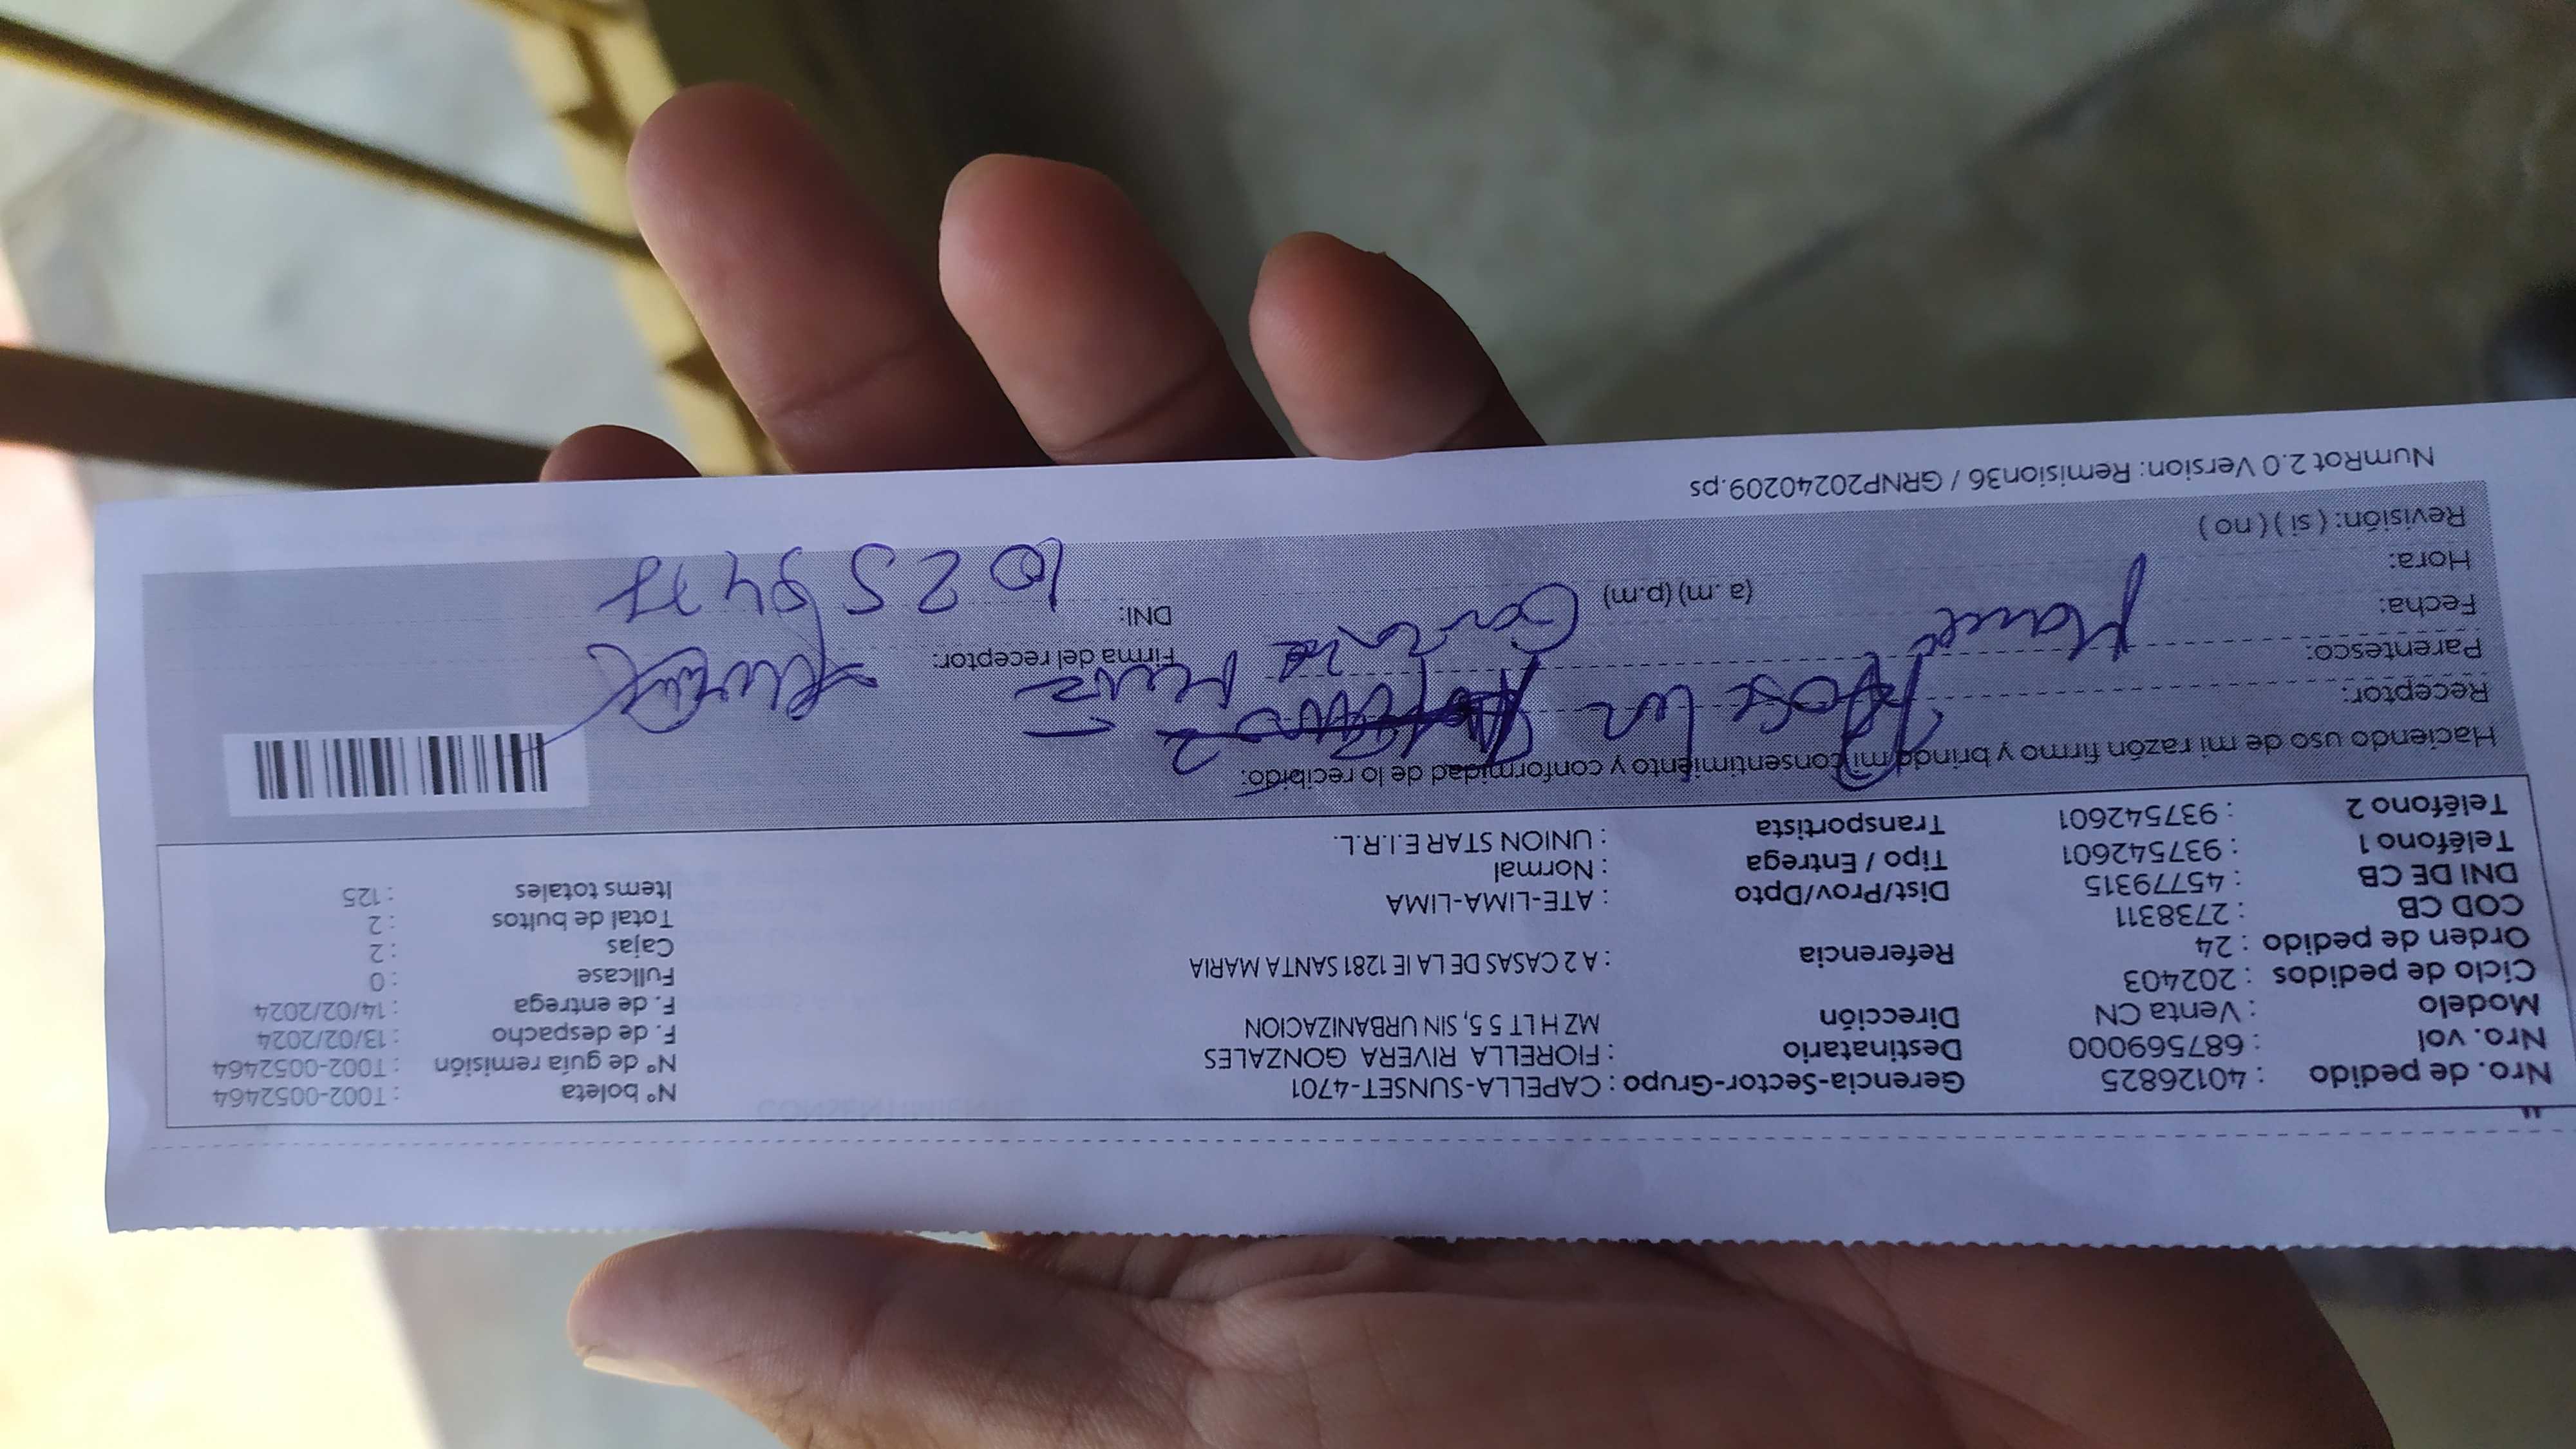 Nro. de pedido : 40126825 Gerencia-Sector-Grupo : CAPELLA-SUNSET-4701 N° boleta : T002-0052464
Nro. vol : 687569000 Destinatario : FIORELLA RIVERA GONZALES N° de guía remisión : T002-0052464
Modelo : Venta CN Dirección MZ H LT 5 5, SIN URBANIZACION F. de despacho : 13/02/2024
Ciclo de pedidos : 202403 F. de entrega : 14/02/2024
Orden de pedido : 24 Referencia : A 2 CASAS DE LA IE 1281 SANTA MARIA Fullcase : 0
COD CB : 2738311 Cajas : 2
DNI DE CB : 45779315 Dist/Prov/Dpto : ATE-LIMA-LIMA Total de bultos : 2
Teléfono 1 : 937542601 Tipo / Entrega : Normal Items totales : 125
Teléfono 2 : 937542601 Transportista : UNION STAR E.I.R.L.
Haciendo uso de mi razón firmo y brindo mi consentimiento y conformidad de lo recibido:
Receptor:
Parentesco: Firma del receptor:
Fecha: DNI:
Hora: (a. m) (p.m)
Revisión: ( si ) ( no )
NumRot 2.0 Version: Remision36 / GRNP20240209.ps